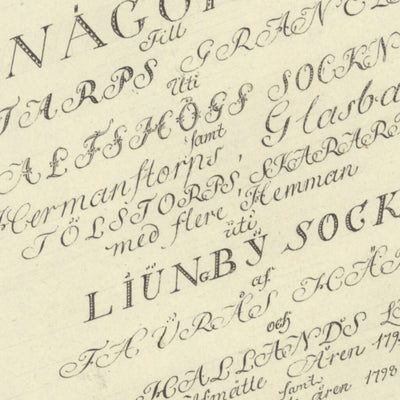 NÅGO
Till
TARPS GRANE
Uti
ALFSHÖGS SOCKN
samt
Hermanstorps, Glasba
TÖLSTORPS, SKARAR
med flere Hemman
üti
LIÜNGBŸ SOCK
af
FAÜRÅS HÄR
och
HALLANDS L
Afmätte Åren 179
samt
åren 1798